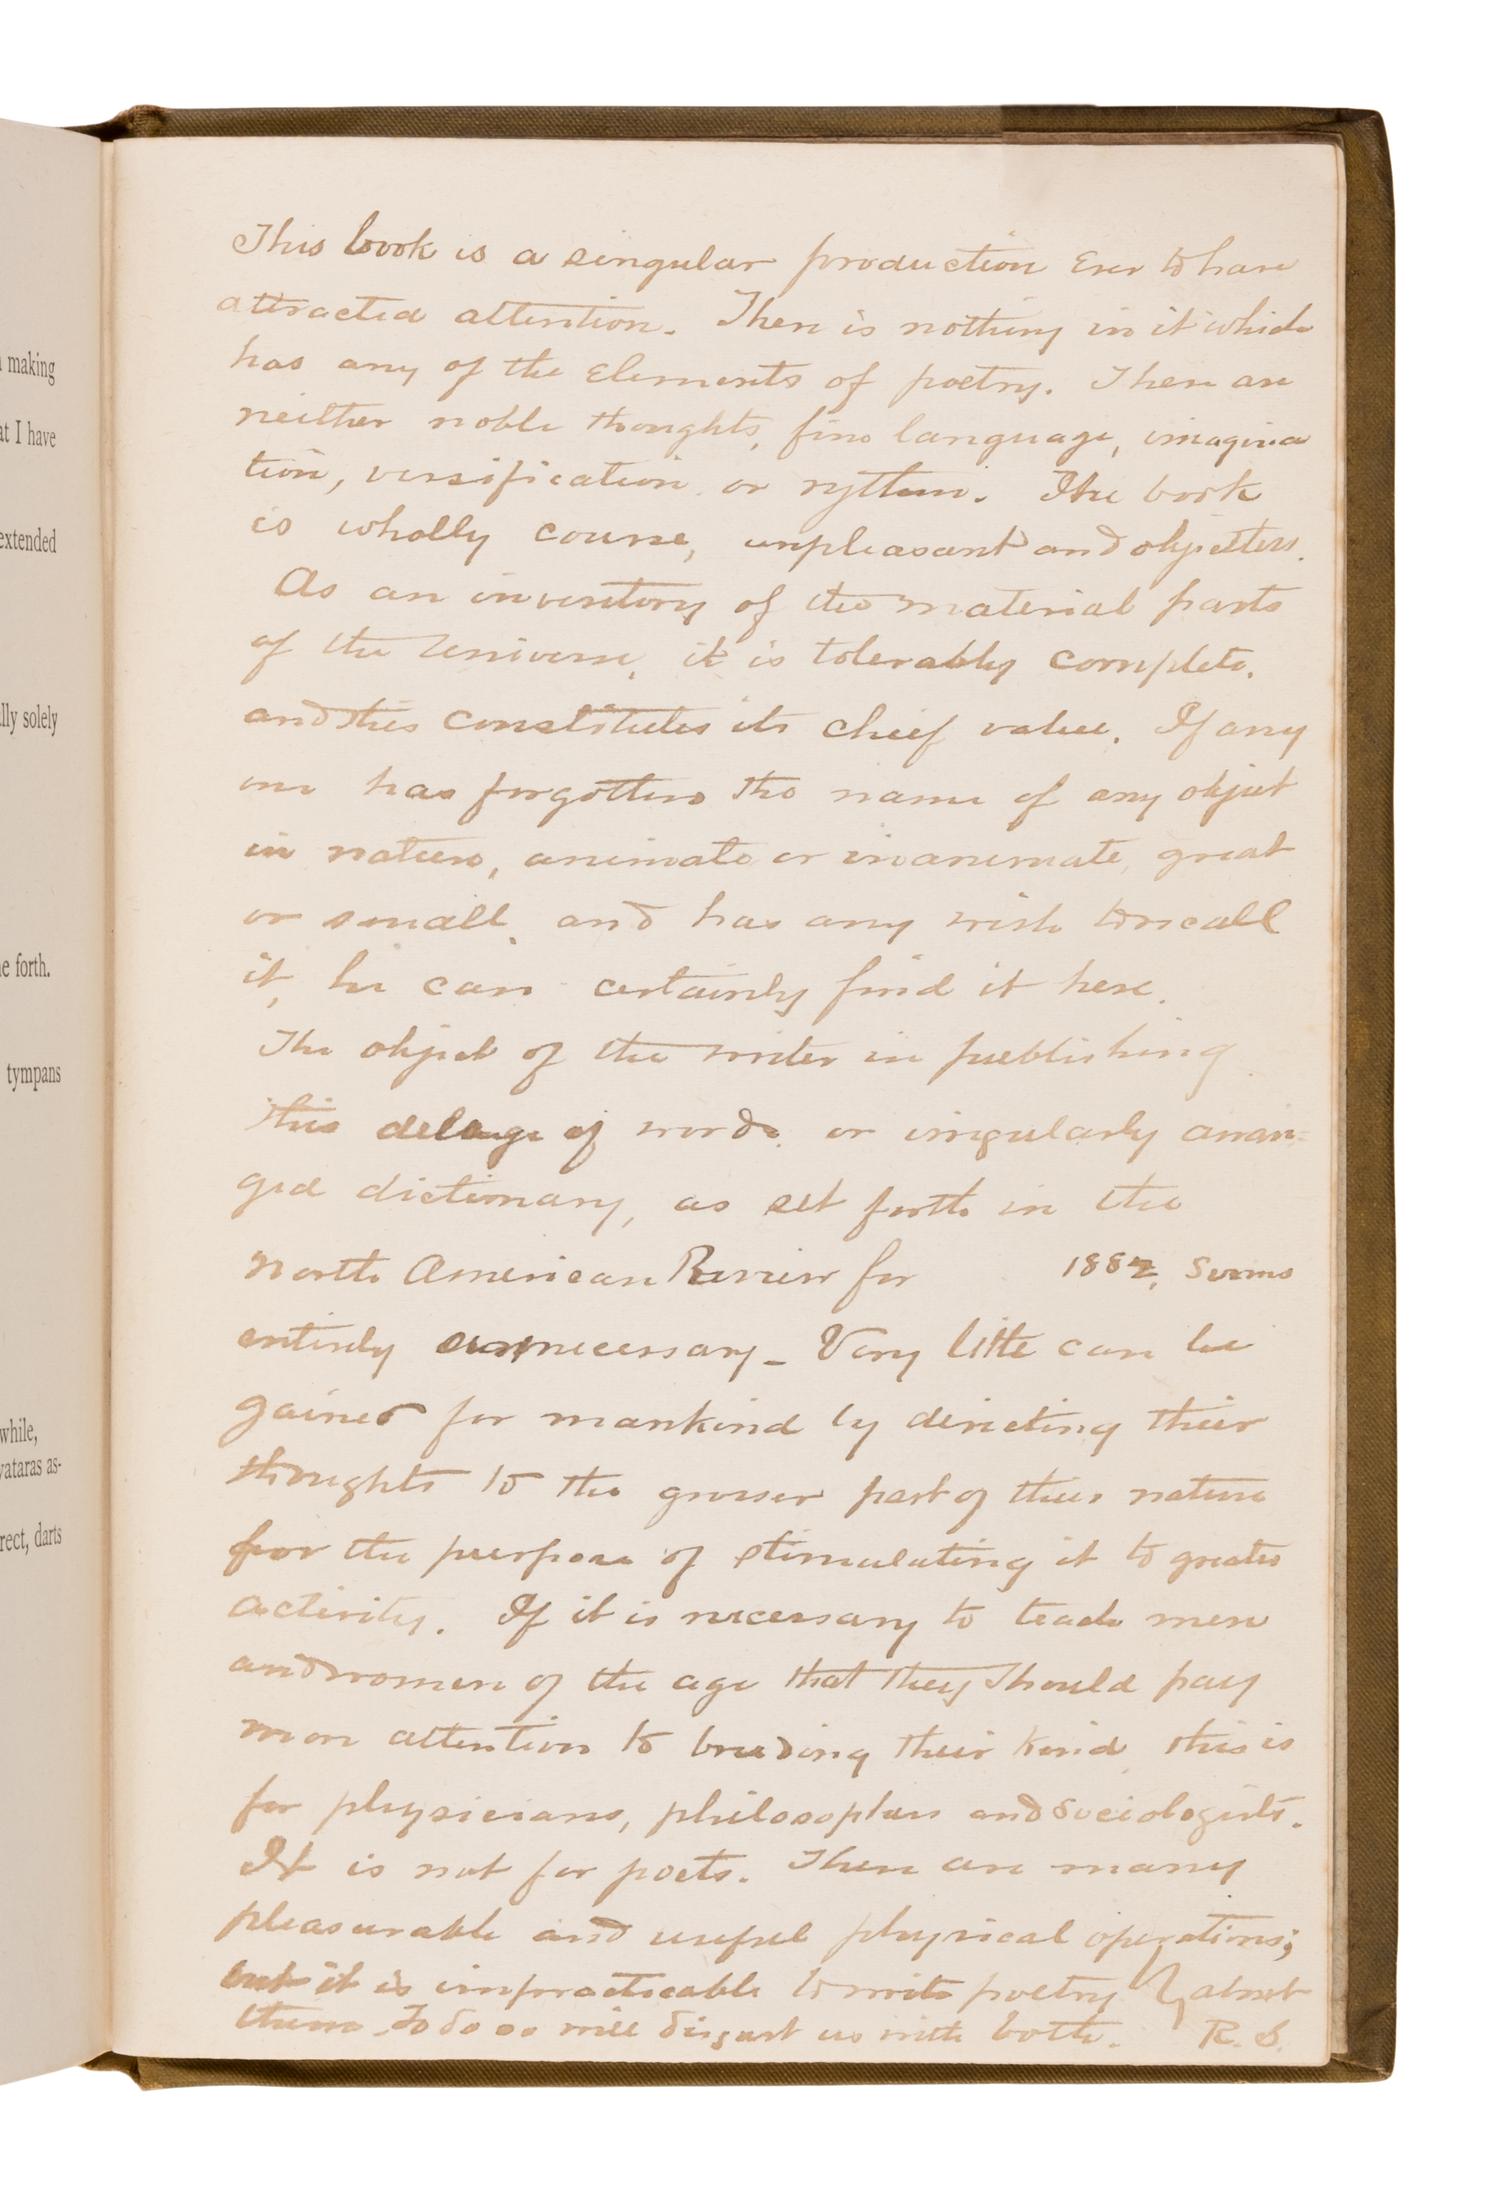 making
at I have
extended
lly solely
e forth.
tympans
while,
vataras as-
rect, darts
This book is a singular production Ever to have
attracted attention. There is nothing in it which
has any of the Elements of poetry. There are
neither noble thoughts, fine language, imagina
tion, versification or rythm. The book
is wholly course, unpleasant and objectless.
As an inventory of the material parts
of the Universe, it is tolerably complete.
and this constitutes its chief value. If any
one has forgotten the name of any object
in nature, animate or inanimate, great
or small, and has any wish to recall
it, he can certainly find it here.
The object of the writer in publishing
this deluge of words, or irregularly arran=
ged dictionary, as set forth in the
North American Review for 1882, Seems
entirely unnecessary - Very little can be
gained for mankind by directing their
thoughts to the grosser part of their nature
for the purpose of stimulating it to greater
activity. If it is necessary to teach men
and women of the age that they should pay
more attention to breeding their kind, this is
for physicians, philosophers and sociologists.
It is not for poets. There are many
pleasurable and useful physical operations;
but it is impracticable to write poetry about
them. To do so will disgust us with both. R. S.